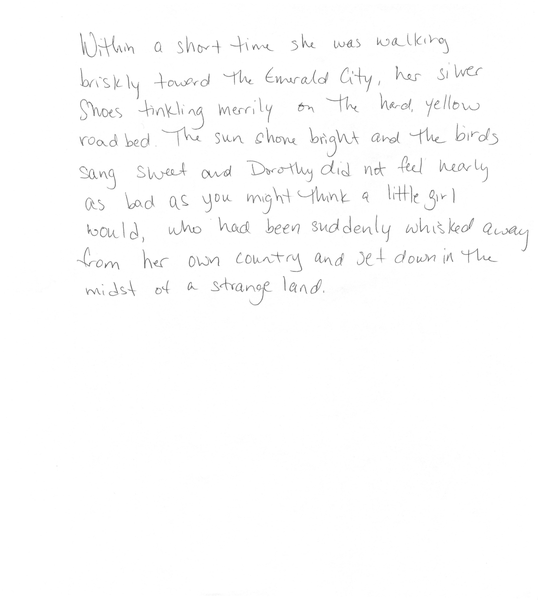 Within a short time she was walking
briskly toward the Emerald City, her silver
Shoes tinkling merrily on the hard, yellow
roadbed. The sun shone bright and the birds
sang sweet and Dorothy did not feel nearly
as bad as you might think a little girl
would, who had been suddenly whisked away
from her own country and set down in the
midst of a strange land.